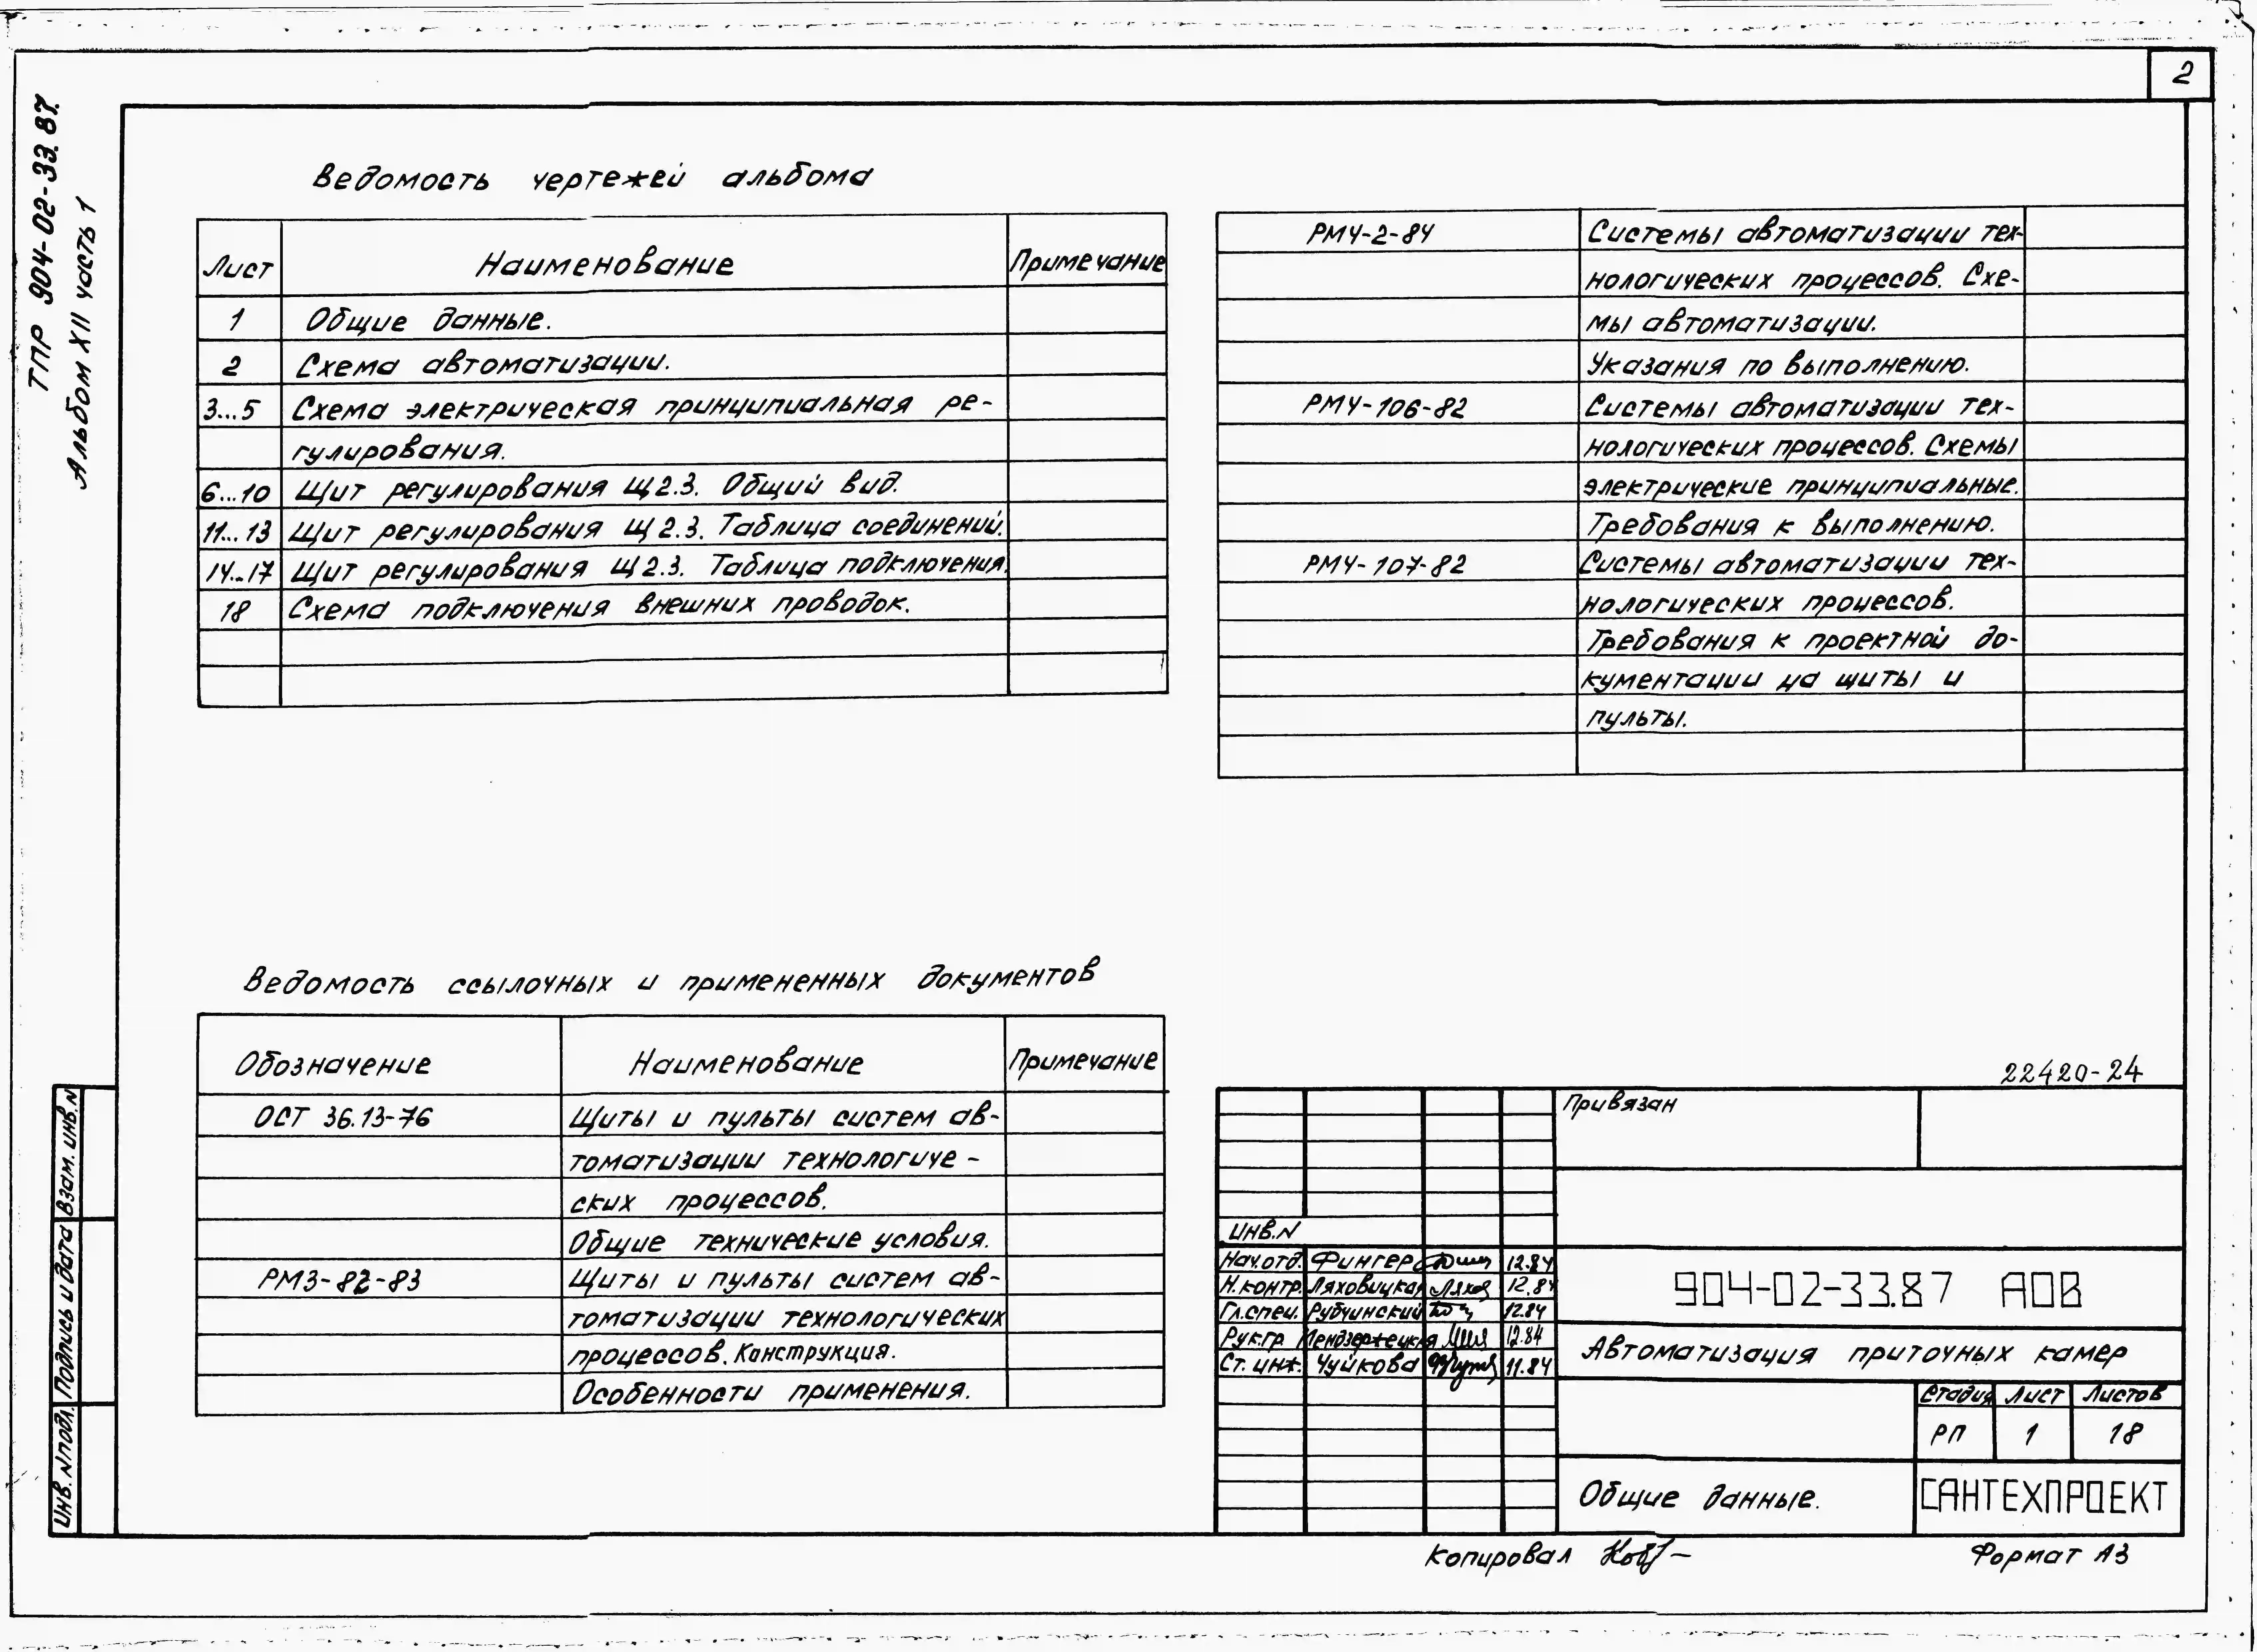 2
ТПР 904-02-33.87.
Альбом XII часть 1
Ведомость чертежей альбома
Лист Наименование Примечание
1 Общие данные.
2 Схема автоматизации.
3...5 Схема электрическая принципиальная ре-
гулирования.
6...10 Щит регулирования Щ2.3. Общий вид.
11...13 Щит регулирования Щ2.3. Таблица соединений.
14...17 Щит регулирования Щ2.3. Таблица подключения.
18 Схема подключения внешних проводок.
РМ4-2-84 Системы автоматизации тех-
нологических процессов. Схе-
мы автоматизации.
Указания по выполнению.
РМ4-106-82 Системы автоматизации тех-
нологических процессов. Схемы
электрические принципиальные.
Требования к выполнению.
РМ4-107-82 Системы автоматизации тех-
нологических процессов.
Требования к проектной до-
кументации на щиты и
пульты.
Ведомость ссылочных и примененных документов
Обозначение Наименование Примечание
ОСТ 36.13-76 Щиты и пульты систем ав-
томатизации технологиче-
ских процессов.
Общие технические условия.
РМ3-82-83 Щиты и пульты систем ав-
томатизации технологических
процессов. Конструкция.
Особенности применения.
22420-24
Привязан
Инв.N
Нач.отд. Фингер 12.84
Н.контр. Ляховицкая 12.84
Гл.спец. Рубчинский 12.84
Рук.гр. Мендзержецкая 12.84
Ст. инж. Чуйкова 11.84
904-02-33.87 АОВ
Автоматизация приточных камер
Стадия Лист Листов
РП 1 18
Общие данные.
САНТЕХПРОЕКТ
Копировал
Формат А3
Взам. инв.N
Подпись и дата
Инв. N подл.